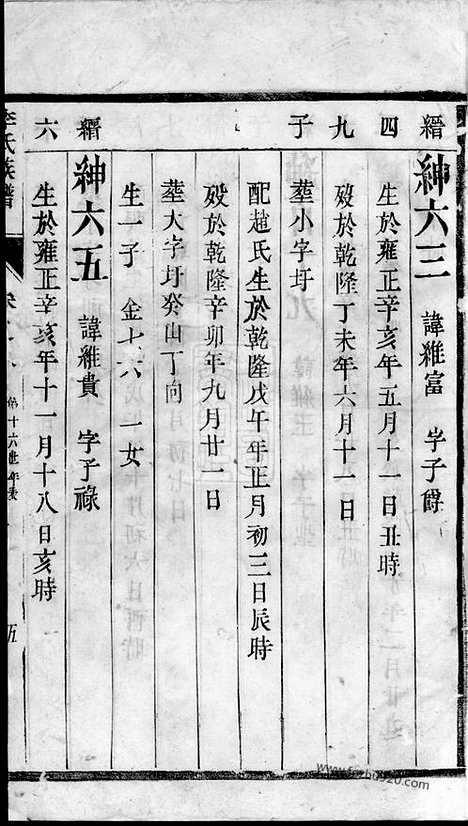 縉
紳六三 諱維富 字子爵
四
生於雍正辛亥年五月十一日丑時
九
歿於乾隆丁未年六月十一日
子
塟小字圩
配趙氏生於乾隆戊午年正月初三日辰時
歿於乾隆辛卯年九月廿一日
塟大字圩癸山丁向
生一子 金七六 一女
縉
紳六五 諱維貴 字子祿
六
生於雍正辛亥年十一月十八日亥時
李氏族譜
第十六世年表
五